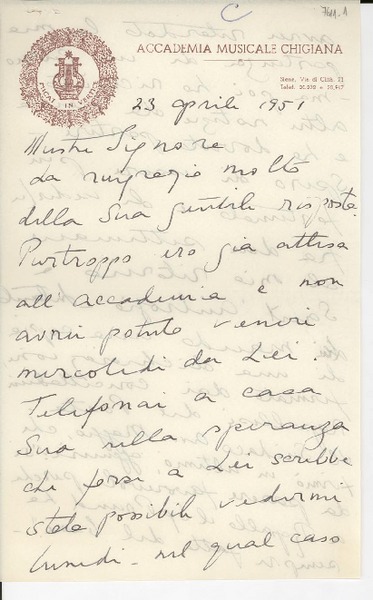 C
7611.1
ACCADEMIA MUSICALE CHIGIANA
MICAT IN VERTICE
Siena, Via di Città, 71
23 aprile 1951
Illustre Signore
La ringrazio molto
della Sua gentile risposta.
Purtroppo ero già attesa
all'Accademia e non
avrei potuto venire
mercoledì da Lei.
Telefonai a casa
Sua nella speranza
che forse a Lei sarebbe
stato possibile vedermi
lunedì - nel qual caso